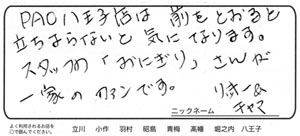 PAO八王子店は 前をとおると
立ちよらないと 気になります。
スタッフの「おにぎり」さんが
一家の ファンです。
リホー&
チャマ
ニックネーム
よく利用されるお店を
○で囲んでください。
立川 小作 羽村 昭島 青梅 高幡 堀之内 八王子